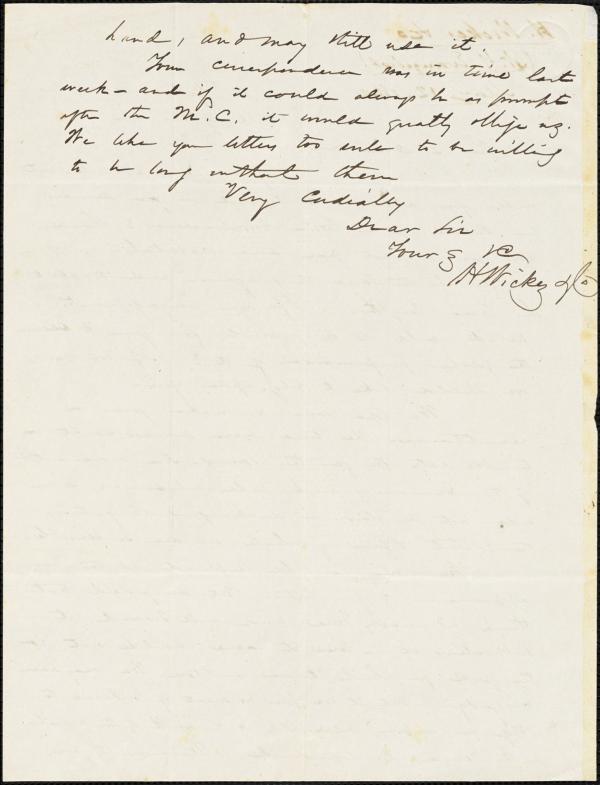 hand, and may still use it.
Your correspondence was in time last
week - and if it could always be as prompt
after the M.C. it would greatly oblige us.
We like your letters too well to be willing
to be long without them
Very Cordially
Dear Sir
Yours &c
H Wickes & Co